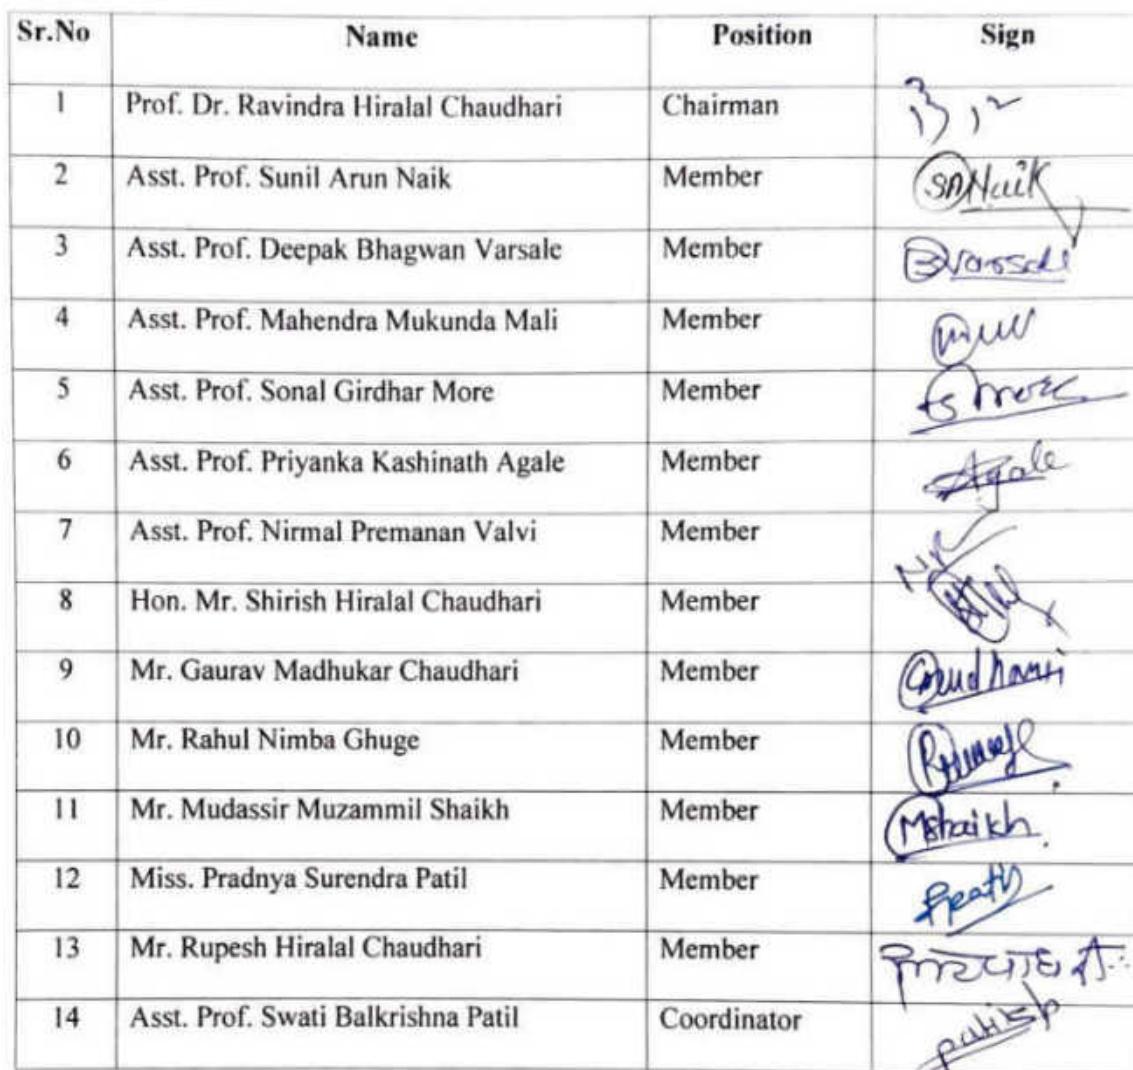 Sr.No Name Position Sign
1 Prof. Dr. Ravindra Hiralal Chaudhari Chairman
2 Asst. Prof. Sunil Arun Naik Member SANaik
3 Asst. Prof. Deepak Bhagwan Varsale Member
4 Asst. Prof. Mahendra Mukunda Mali Member
5 Asst. Prof. Sonal Girdhar More Member S more
6 Asst. Prof. Priyanka Kashinath Agale Member Agale
7 Asst. Prof. Nirmal Premanan Valvi Member
8 Hon. Mr. Shirish Hiralal Chaudhari Member
9 Mr. Gaurav Madhukar Chaudhari Member
10 Mr. Rahul Nimba Ghuge Member
11 Mr. Mudassir Muzammil Shaikh Member MShaikh
12 Miss. Pradnya Surendra Patil Member
13 Mr. Rupesh Hiralal Chaudhari Member
14 Asst. Prof. Swati Balkrishna Patil Coordinator